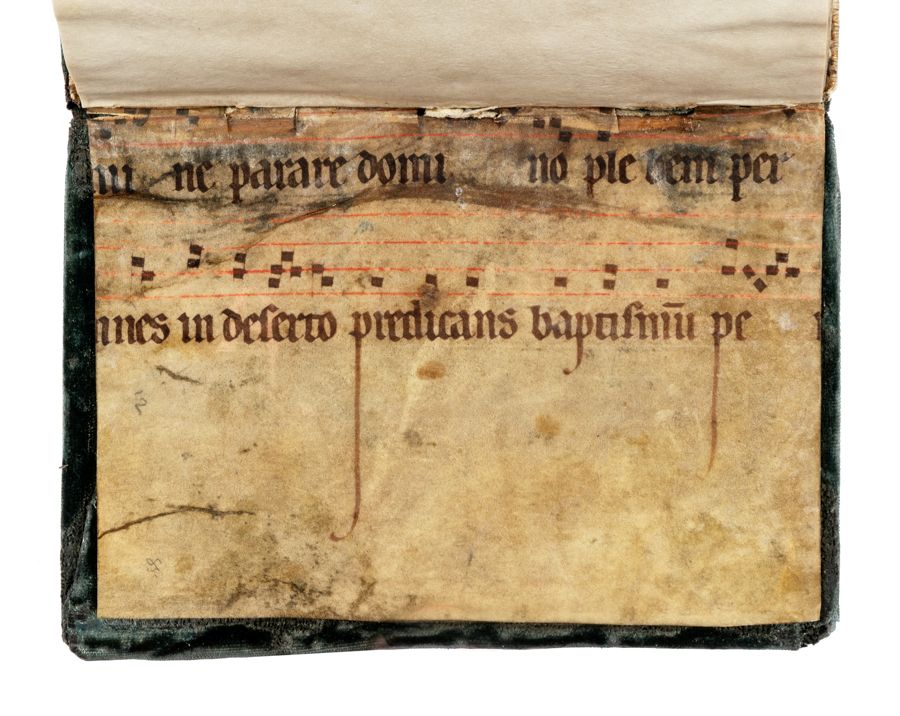 ni ne parare domi no ple bem per
nnes in deserto predicans baptismū pe